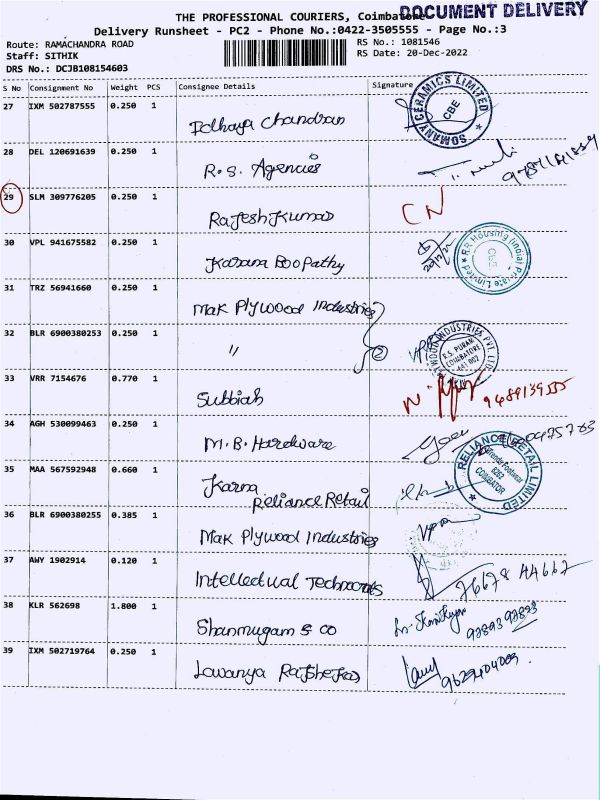 THE PROFESSIONAL COURIERS, Coimbatore
DOCUMENT DELIVERY
Delivery Runsheet - PC2 - Phone No.:0422-3505555 - Page No.:3
Route: RAMACHANDRA ROAD
Staff: SITHIK
DRS No.: DCJB108154603
RS No.: 1081546
RS Date: 20-Dec-2022
S No Consignment No Weight PCS Consignee Details Signature
27 IXM 502787555 0.250 1 Idhaya Chandran
SOMANY CERAMICS LIMITED
CBE
28 DEL 120691639 0.250 1 R.S. Agencies
29 SLM 309776205 0.250 1 Rajesh Kumar CN
30 VPL 941675582 0.250 1 Karana Boopathy
20/12/22
RR Housing (India) Private Limited
CBE
31 TRZ 56941660 0.250 1 Mak Plywood Industries
32 BLR 6900380253 0.250 1 〃 2
PLYWOOD INDUSTRIES PVT. LTD.
R.S. PURAM
COIMBATORE
641 002
33 VRR 7154676 0.770 1 Subbiah
34 AGH 530099463 0.250 1 M.B. Hardware
35 MAA 567592948 0.660 1 Karna
Reliance Retail
RELIANCE RETAIL LIMITED
Trends Footwear
6262
COIMBATOR
36 BLR 6900380255 0.385 1 Mak Plywood Industries
37 AWY 1902914 0.120 1 Intellectual Technocrats 76678 44667
38 KLR 562698 1.800 1 Shanmugam & Co
39 IXM 502719764 0.250 1 Lawanya Rajshekar